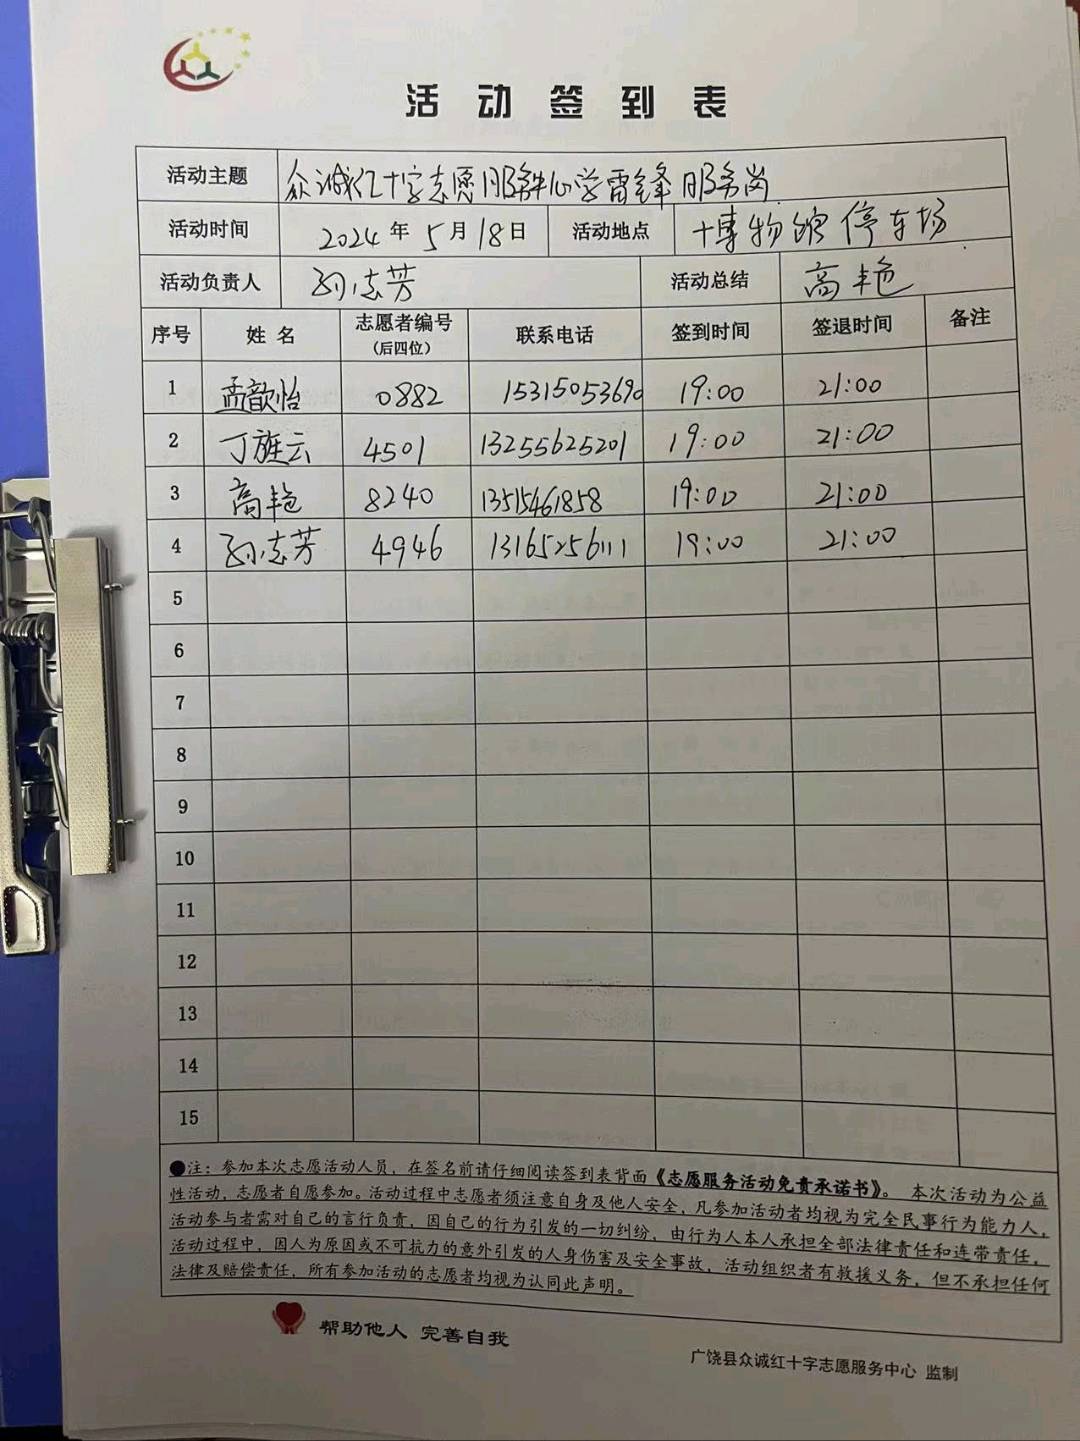 活动签到表
活动主题 众诚红十字志愿服务中心学雷锋服务岗
活动时间 2024年5月18日 活动地点 博物馆停车场
活动负责人 孙志芳 活动总结 高艳
序号 姓名 志愿者编号（后四位） 联系电话 签到时间 签退时间 备注
1 孟歆怡 0882 15315053690 19:00 21:00
2 丁旌云 4501 13255625201 19:00 21:00
3 高艳 8240 13515461858 19:00 21:00
4 孙志芳 4946 13165256111 19:00 21:00
5
6
7
8
9
10
11
12
13
14
15
●注：参加本次志愿活动人员，在签名前请仔细阅读签到表背面《志愿服务活动免责承诺书》。本次活动为公益
性活动，志愿者自愿参加。活动过程中志愿者须注意自身及他人安全，凡参加活动者均视为完全民事行为能力人，
活动参与者需对自己的言行负责，因自己的行为引发的一切纠纷，由行为人本人承担全部法律责任和连带责任，
活动过程中，因人为原因或不可抗力的意外引发的人身伤害及安全事故，活动组织者有救援义务，但不承担任何
法律及赔偿责任，所有参加活动的志愿者均视为认同此声明。
帮助他人 完善自我
广饶县众诚红十字志愿服务中心 监制